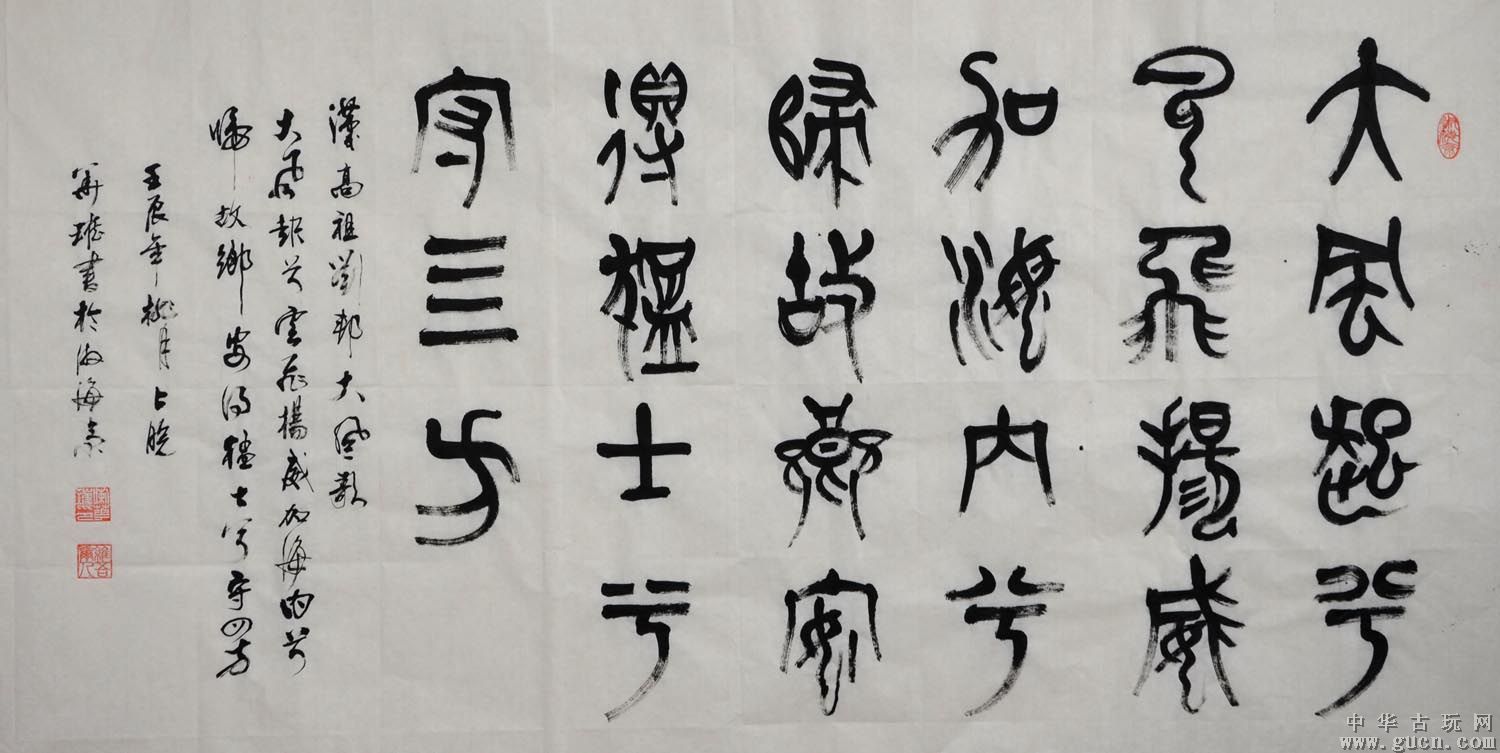 大風起兮
雲飛揚威
加海内兮
歸故鄉安
得猛士兮
守三方
漢高祖劉邦大風歌
大風起兮雲飛揚威加海内兮
歸故鄉安得猛士兮守四方
壬辰年桃月上晥
華雄書於渤海
中华古玩网
www.gucn.com